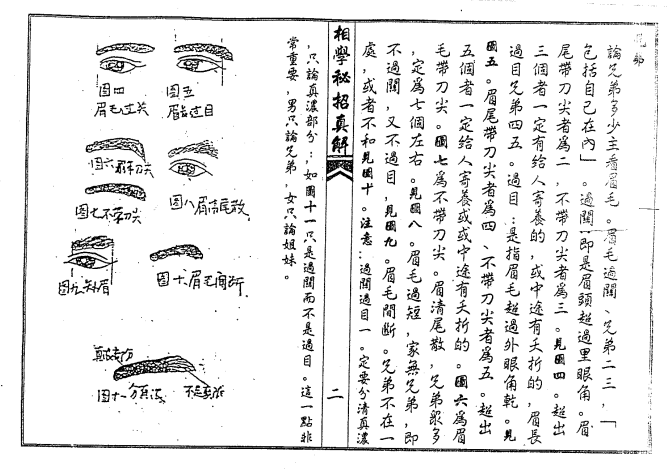 兄弟
論兄弟多少主看眉毛。眉毛過闊、兄弟二三,「
包括自己在內」。過闊—即是眉頭超過里眼角。眉
尾帶刀尖者為二,不帶刀尖者為三。見圖四。超出
三個者一定有給人寄養的,或中途有夭折的,眉長
過目兄弟四五。過目:是指眉毛超過外眼角乾。見
圖五。眉尾帶刀尖者為四、不帶刀尖者為五。超出
五個者一定給人寄養或或中途有夭折的。圖六為眉
毛帶刀尖。圖七為不帶刀尖。眉清尾散,兄弟眾多
,定為七個左右。見圖八。眉毛過短,家無兄弟,即
不過闊,又不過目,見圖九。眉毛間斷。兄弟不在一
處,或者不和見圖十。注意:過闊過目一。定要分清真濃
相學祕招真解
二
,只論真濃部分:,如圖十一只是過闊而不是過目。這一點非
常重要,男只論兄弟,女只論姐妹。
图五
眉長过目
图四
眉毛过关
图八眉清尾散
图六帶刀尖
图七不帶刀尖
图十眉毛间断
图九短眉
真濃部分
图十一
不是真濃